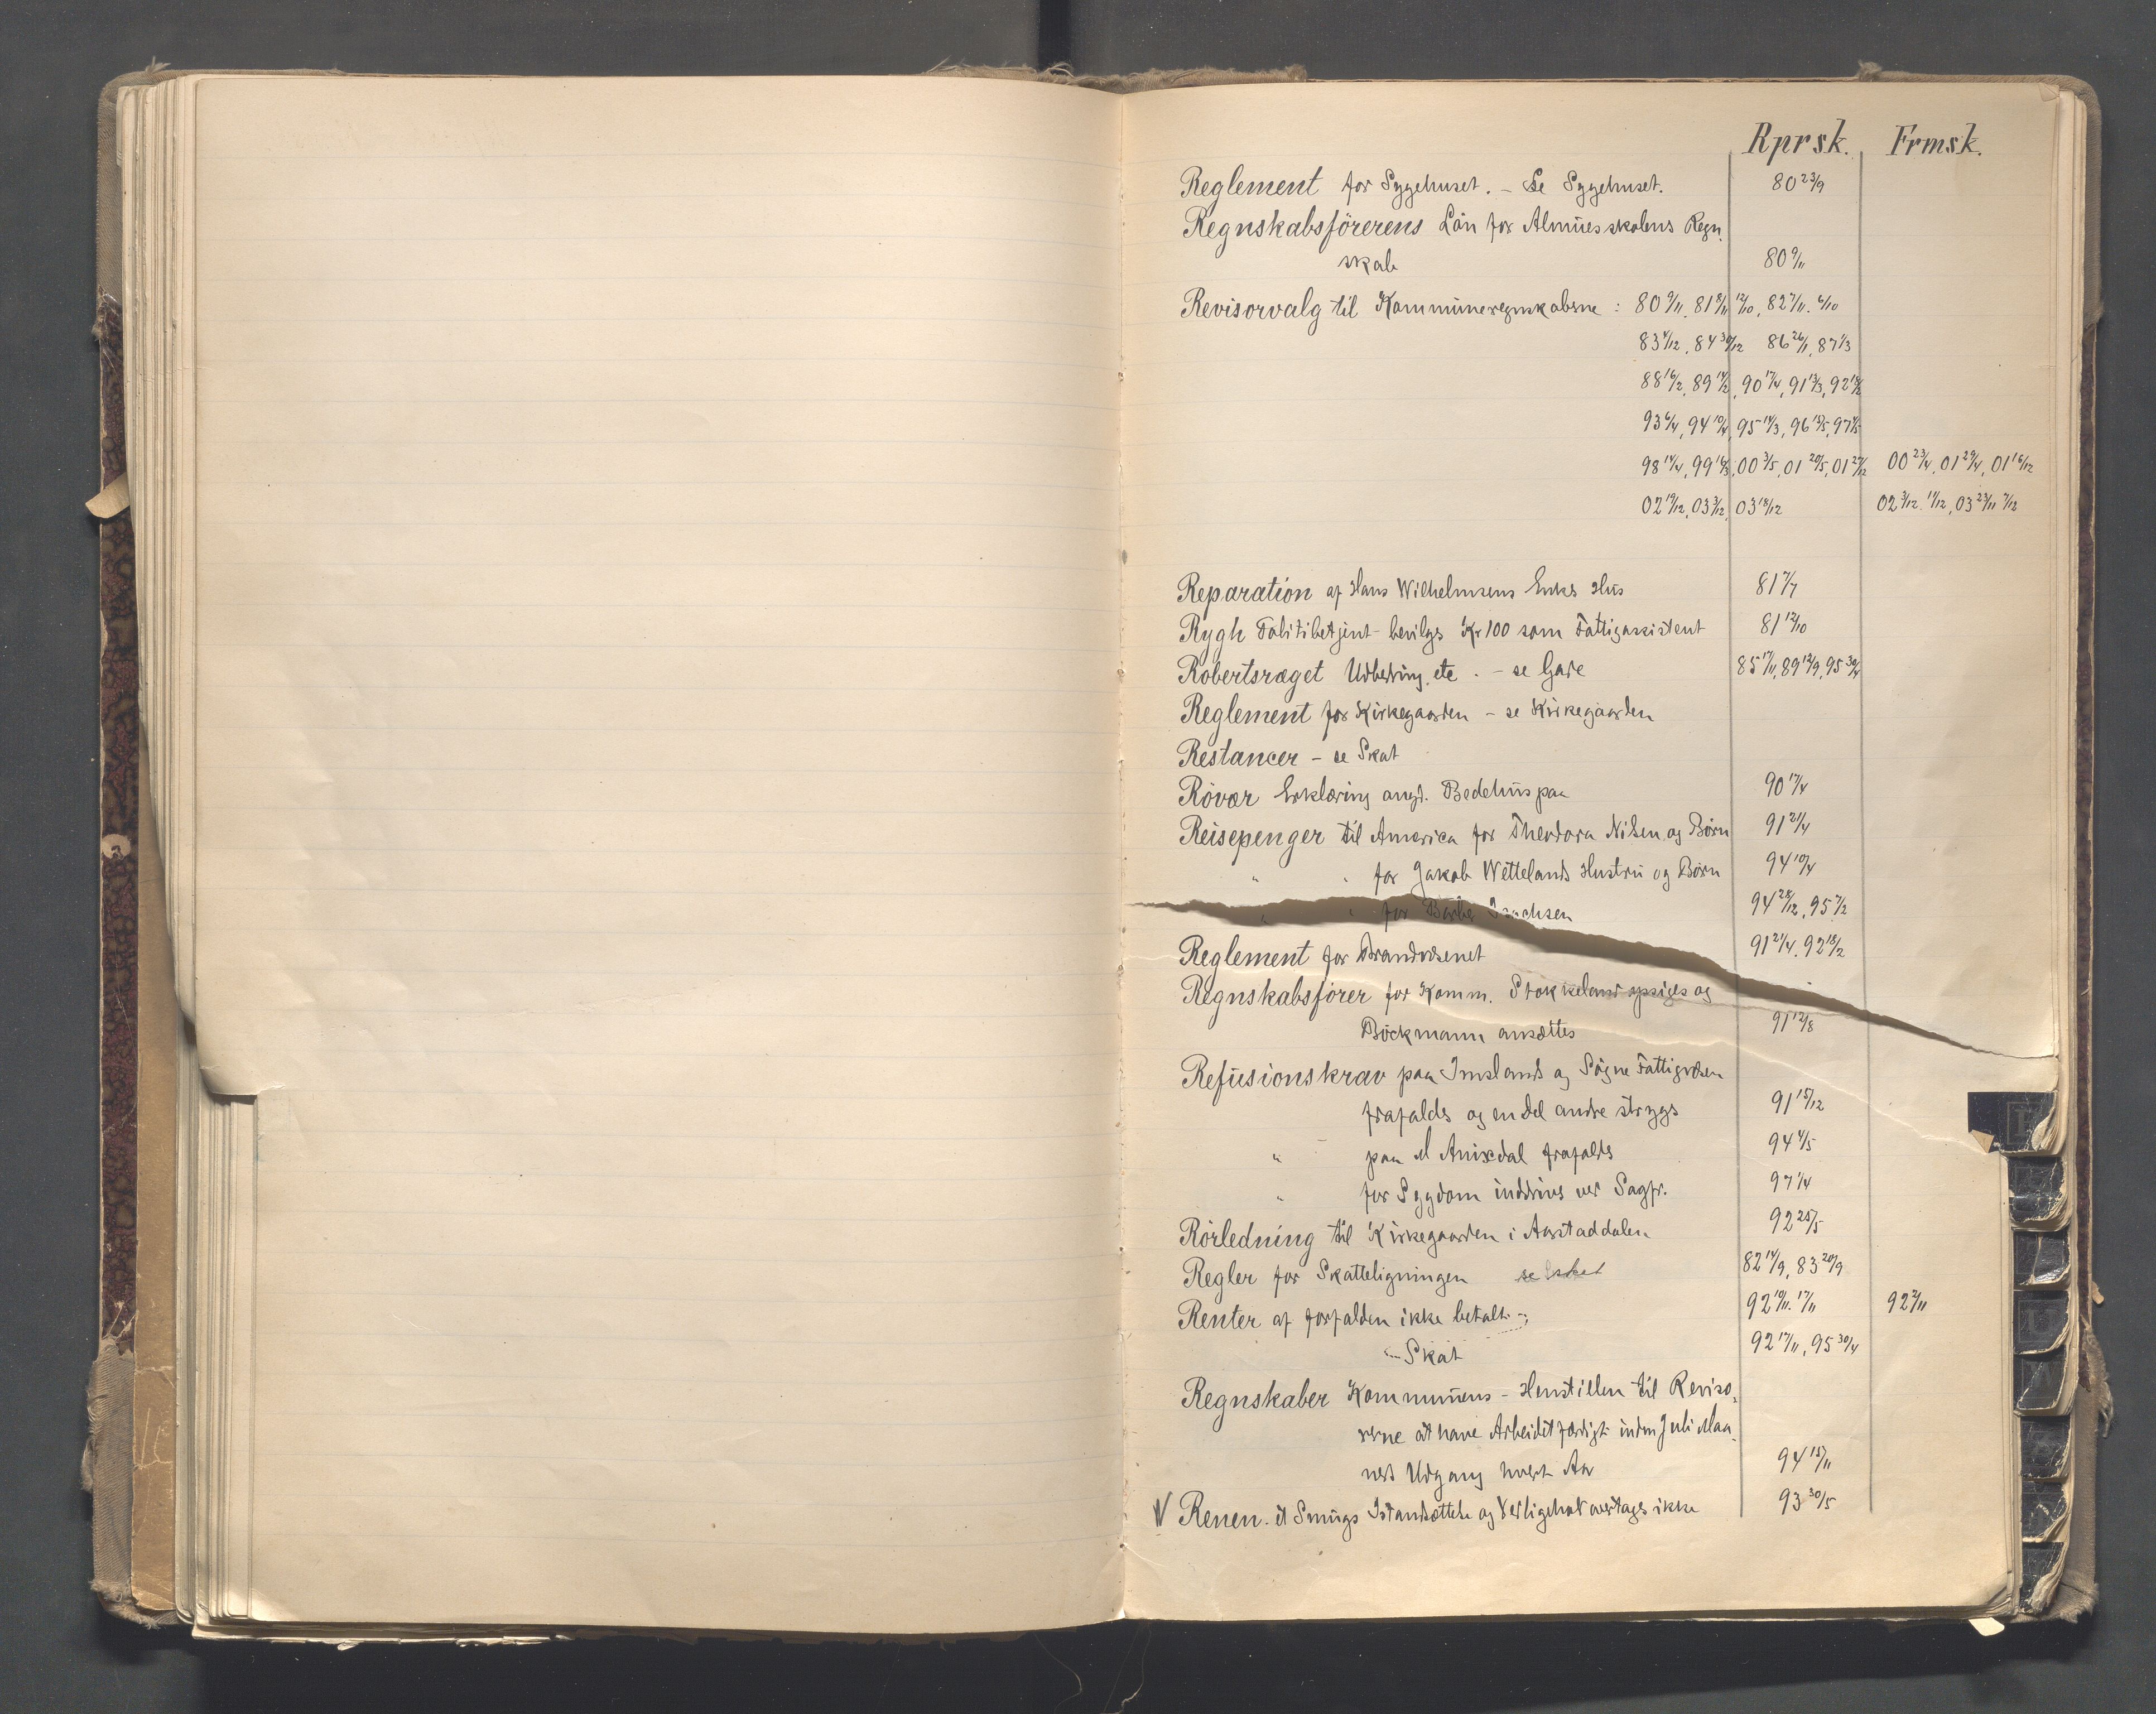 Rprsk. Frmsk.
Reglement for Sygehuset. – Se Sygehuset. 80 23/9
Regnskabsförerens Lön for Almuesskolens Regn-
skab 80 9/11
Revisorvalg til Kommuneregnskaberne : 80 9/11, 81 8/11 12/10, 82 7/11. 6/10
83 4/12, 84 30/12 86 26/1, 87 1/3
88 16/2, 89 14/2, 90 17/4, 91 13/3, 92 18/2
93 6/4, 94 10/4, 95 14/3, 96 13/5, 97 4/5
98 14/4, 99 16/3, 00 3/5, 01 20/5, 01 27/12 00 23/4, 01 29/4, 01 16/12
02 19/12, 03 3/12, 03 18/12 02 3/12 11/12, 03 23/11 7/12
Reparation af Hans Wilhelmsens Enkes Hus 81 7/7
Rygh Politibetjent – bevilges Kr 100 som Fattigassistent 81 12/10
Robertsræget Udbedring etc. – se Gade 85 17/11, 89 12/9, 95 30/4
Reglement for Kirkegaarden – se Kirkegaarden
Restancer – se Skat
Rövær Erklæring angd. Bedehus paa 90 17/4
Reisepenger til America for Theodora Nilsen og Börn 91 21/4
" " for Jakob Wettelands Hustru og Börn 94 10/4
" " for Isachsen 94 28/12, 95 7/2
Reglement for Brandvæsenet 91 21/4. 92 18/2
Regnskabsförer for Komm. Stokkeland opsiges og
Böckmann ansættes 91 12/8
Refusionskrav paa Imslands og Sögne Fattigvæsen
frafaldes og en del andre stryges 91 15/12
" paa M Anisdal frafaldes 94 4/5
" for Sygdom inddrives ved Sagfr. 97 1/4
Rörledning til Kirkegaarden i Aarstaddalen 92 25/5
Regler for Skatteligningen se skat 82 14/9, 83 20/9
Renter af forfalden ikke betalt 92 10/11. 17/11 92 2/11
Skat 92 17/11, 95 30/4
Regnskaber Kommunens – Henstillen til Reviso-
rerne at have Arbeidet færdigt inden Juli Maa-
neds Udgang hvert Aar 94 15/11
V Renen. et Smugs Istandsættelse og Vedligehold overtages ikke 93 30/5